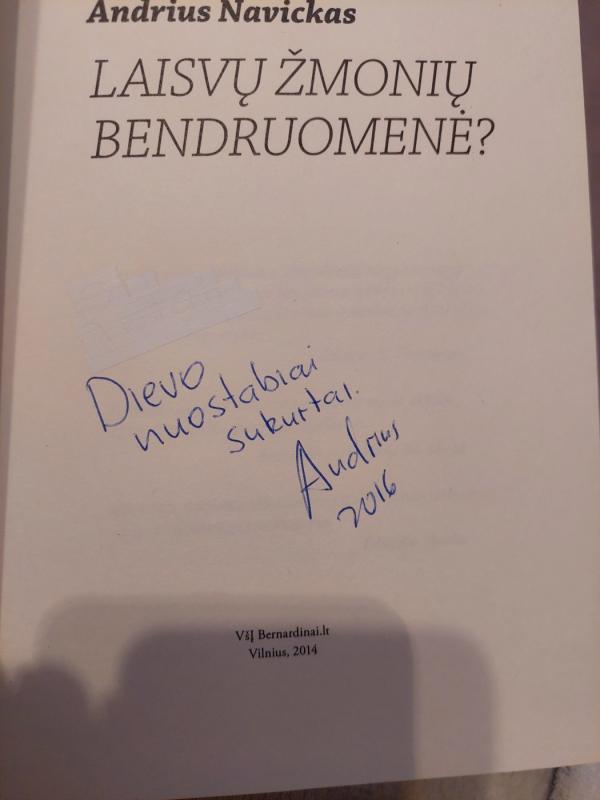 Andrius Navickas
LAISVŲ ŽMONIŲ
BENDRUOMENĖ?
Dievo
nuostabiai
sukurtai.
Andrius
2016
VšĮ Bernardinai.lt
Vilnius, 2014